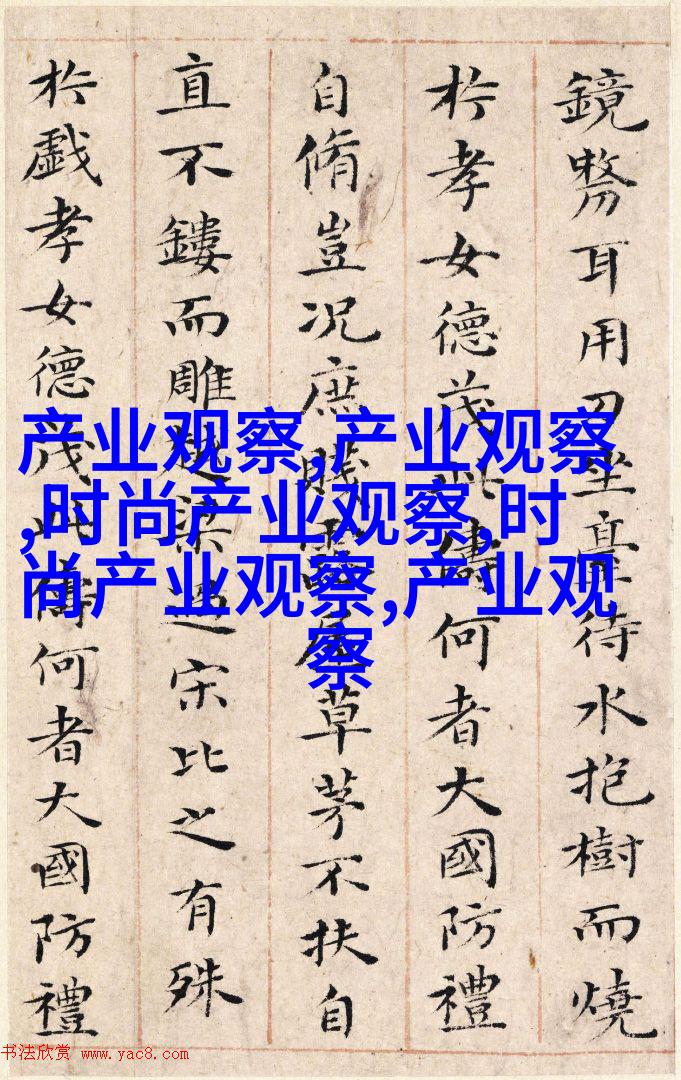 鏡剺耳用刀坐臺待水抱樹而燒
於孝女德茂此儔何者大國防禮
自脩豈況庶賤露屋草茅不扶自
直不鏤而雕越梁過宋比之有殊
於戲孝女德茂此儔何者大國防禮
产业观察,产业观察
,时尚产业观察,时
尚产业观察,产业观
察
书法欣赏 www.yac8.com